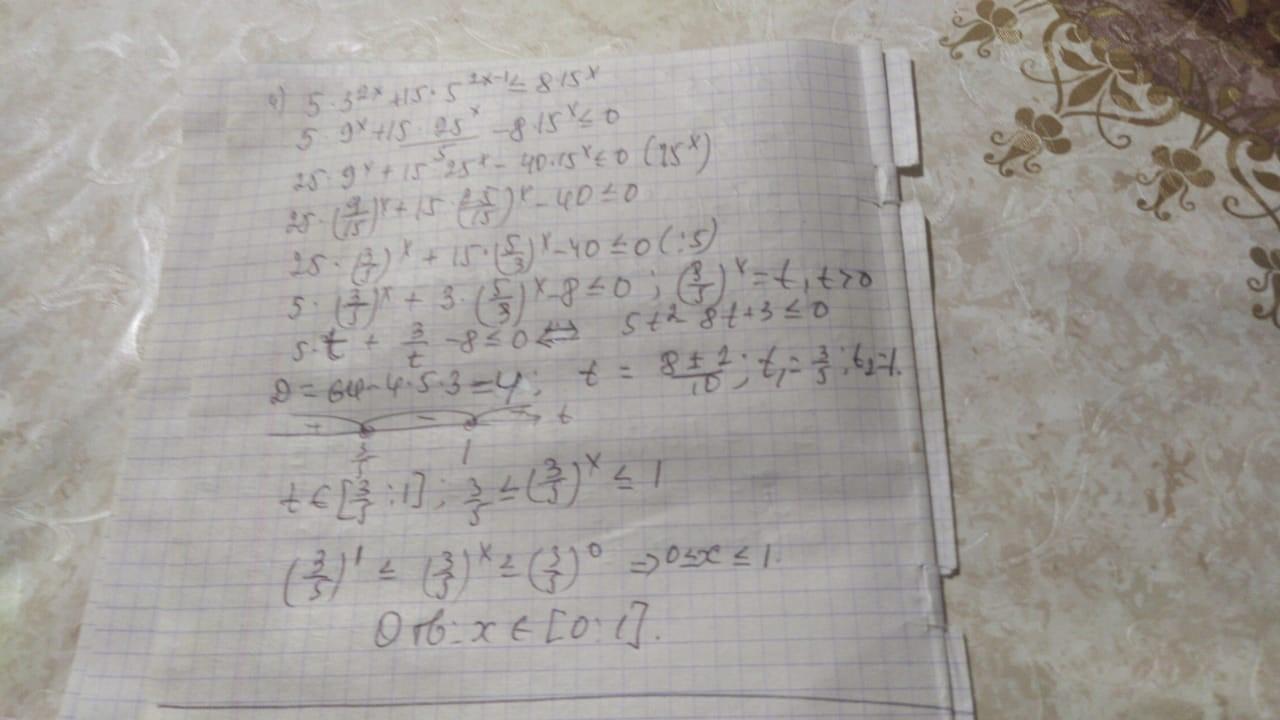 4) 5·3^{2x}+15·5^{2x-1} ≤ 8·15^x
5·9^x+15·\frac{25^x}{5} -8·15^x ≤ 0
25·9^x+15·25^x-40·15^x ≤ 0 (25^x)
25·(\frac{9}{15})^x+15·(\frac{25}{15})^x-40 ≤ 0
25·(\frac{3}{5})^x+15·(\frac{5}{3})^x-40 ≤ 0 (:5)
5·(\frac{3}{5})^x+3·(\frac{5}{3})^x-8 ≤ 0; (\frac{3}{5})^x=t, t>0
5·t+\frac{3}{t}-8 ≤ 0 ⇔ 5t^2-8t+3 ≤ 0
D=64-4·5·3=4; t=\frac{8±2}{10}; t_1=\frac{3}{5}; t_2=1.
+ - + t
\frac{3}{5} 1
t ∈ [\frac{3}{5}:1]; \frac{3}{5} ≤ (\frac{3}{5})^x ≤ 1
(\frac{3}{5})^1 ≤ (\frac{3}{5})^x ≤ (\frac{3}{5})^0 ⇒ 0≤x≤1.
Отв: x ∈ [0:1].